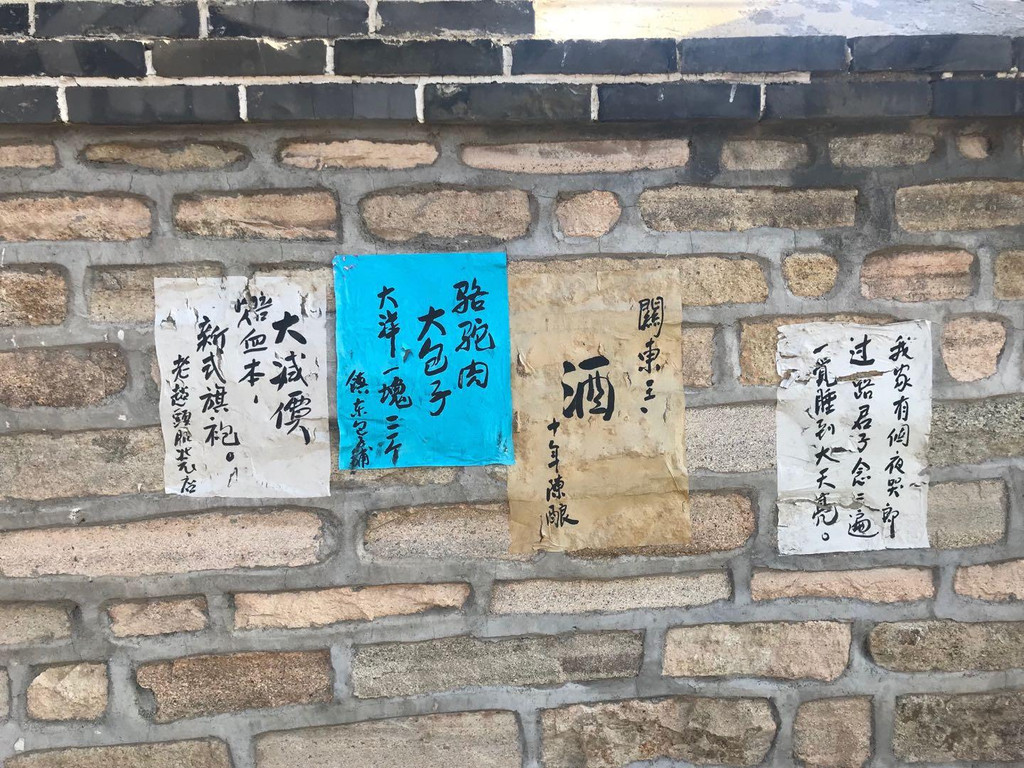 大減價
焙血本，
新式旗袍。
老趙頭服装店
駱駝肉
大包子
大洋一塊二个
鎮东包鋪
關東王、
酒
十年陳酿
我家有個夜哭郎
过路君子念三遍
一覺睡到大天亮。